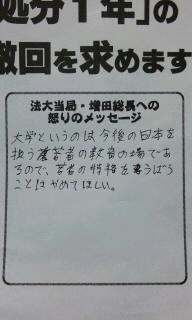 処分1年」の
撤回を求めます
法大当局・増田総長への
怒りのメッセージ
大学というのは今後の日本を
扱う若者の教育の場であ
るので、若者の情報を奪うばう
ことはやめてほしい。